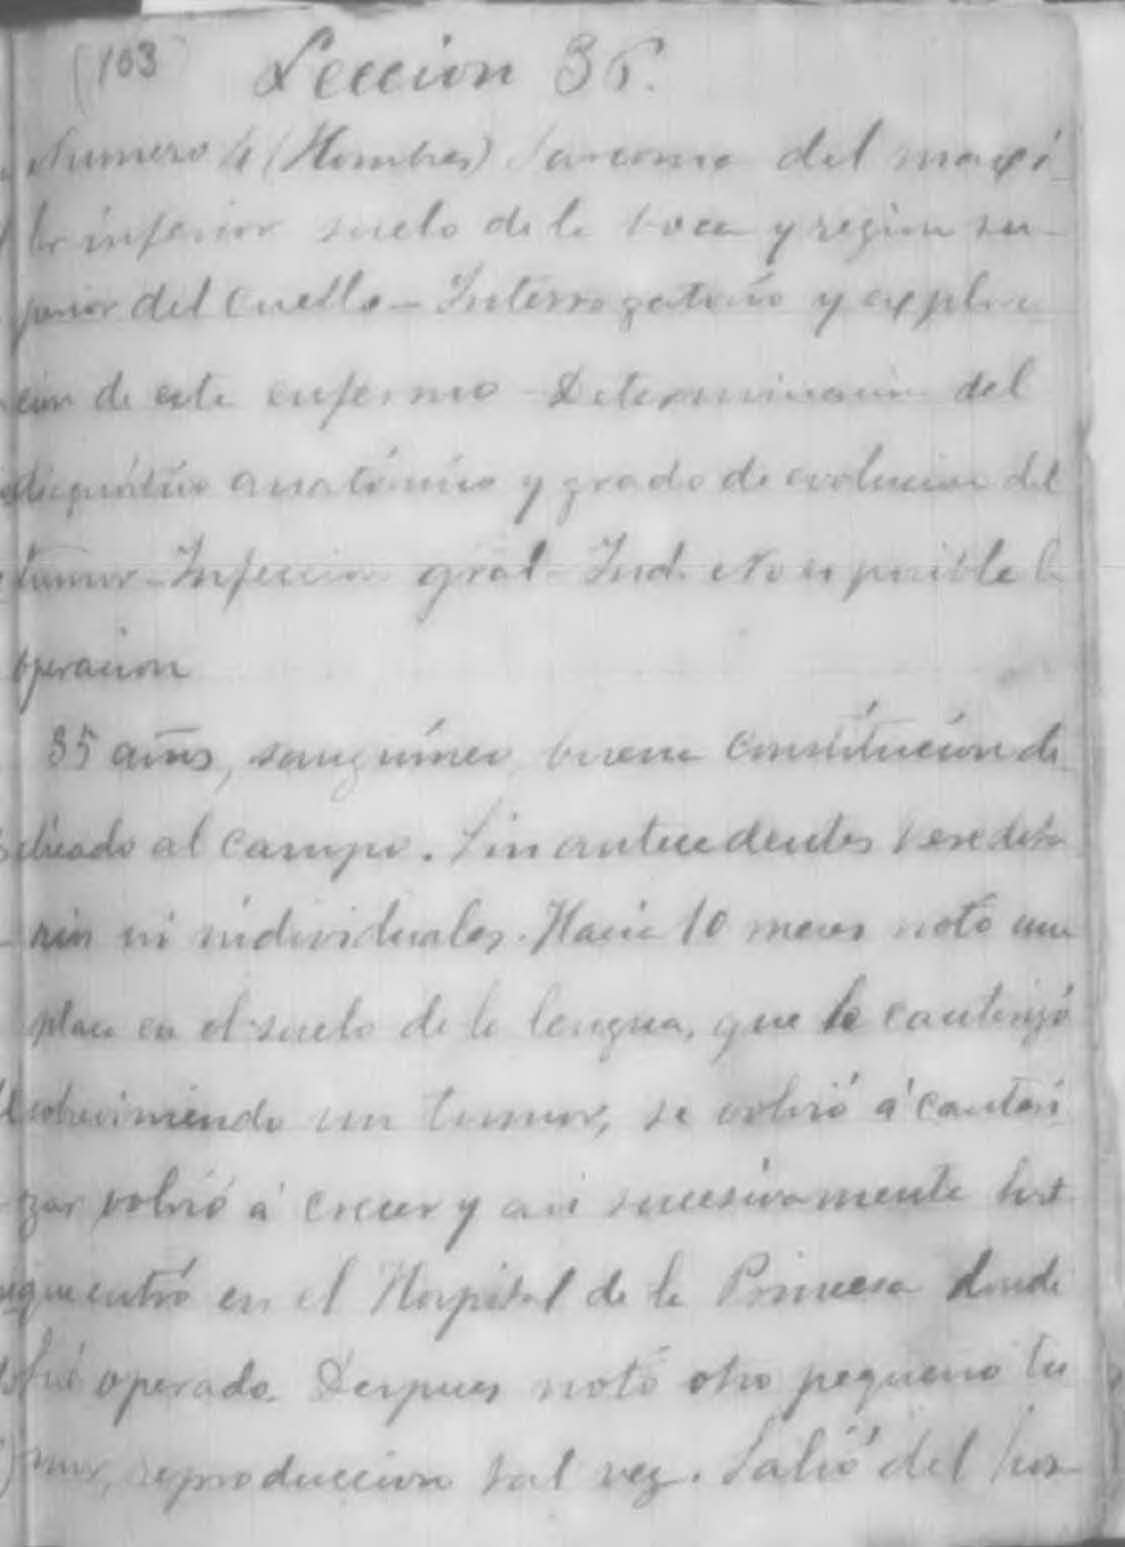 (103)
Leccion 36.
Numero 4 (Hombres) Sarcoma del maxi-
lar inferior suelo de la boca y region su-
perior del cuello - Interrogatorio y explora
cion de este enfermo - Determinacion del
diagnóstico anatómico y grado de evolucion del
tumor - Infeccion gral - Ind. No es posible la
operacion
35 años, sanguíneo, buena constitución de-
dicado al campo. Sin antecedentes heredita
rios ni individuales. Hacia 10 meses notó una
placa en el suelo de la lengua, que le cauterizó
sobreviniendo un tumor, se volvió á cauteri
zar volvió á crecer y asi sucesivamente hast
que entró en el Hospital de la Princesa donde
fué operado. Despues notó otro pequeño tu
mor, reproduccion tal vez. Salió del hos-